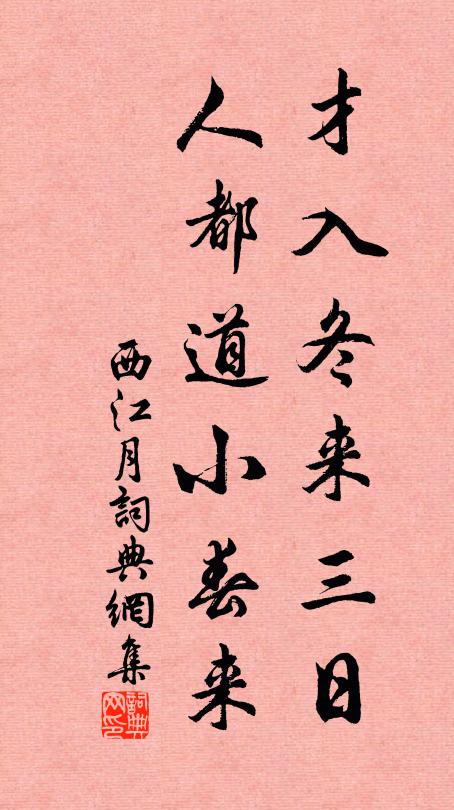 才入冬来三日
人都道小春来
西江月詞典網集
詞典网印